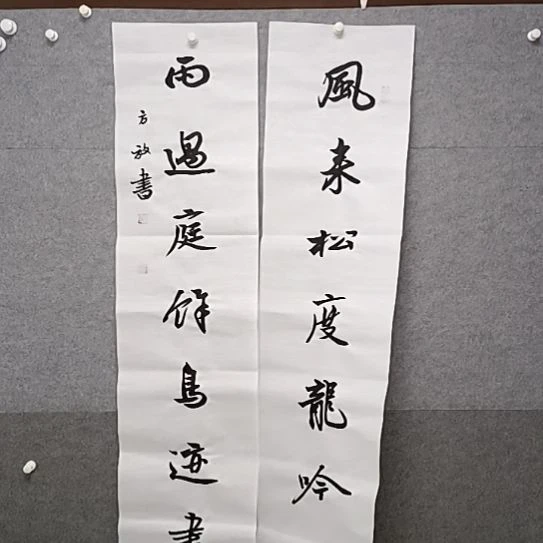 風来松度龍吟
雨過庭餘鳥迹書
方放書